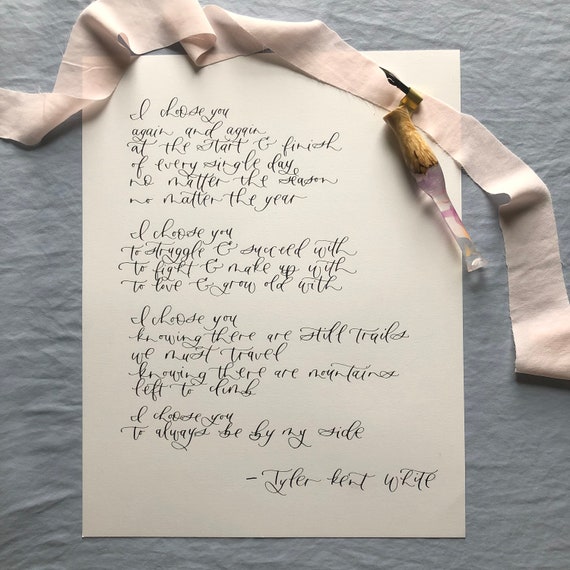 I choose you
again and again
at the start & finish
of every single day
no matter the season
no matter the year
I choose you
to struggle & succeed with
to fight & make up with
to love & grow old with
I choose you
knowing there are still trails
we must travel
knowing there are mountains
left to climb
I choose you
to always be by my side
- Tyler Kent White